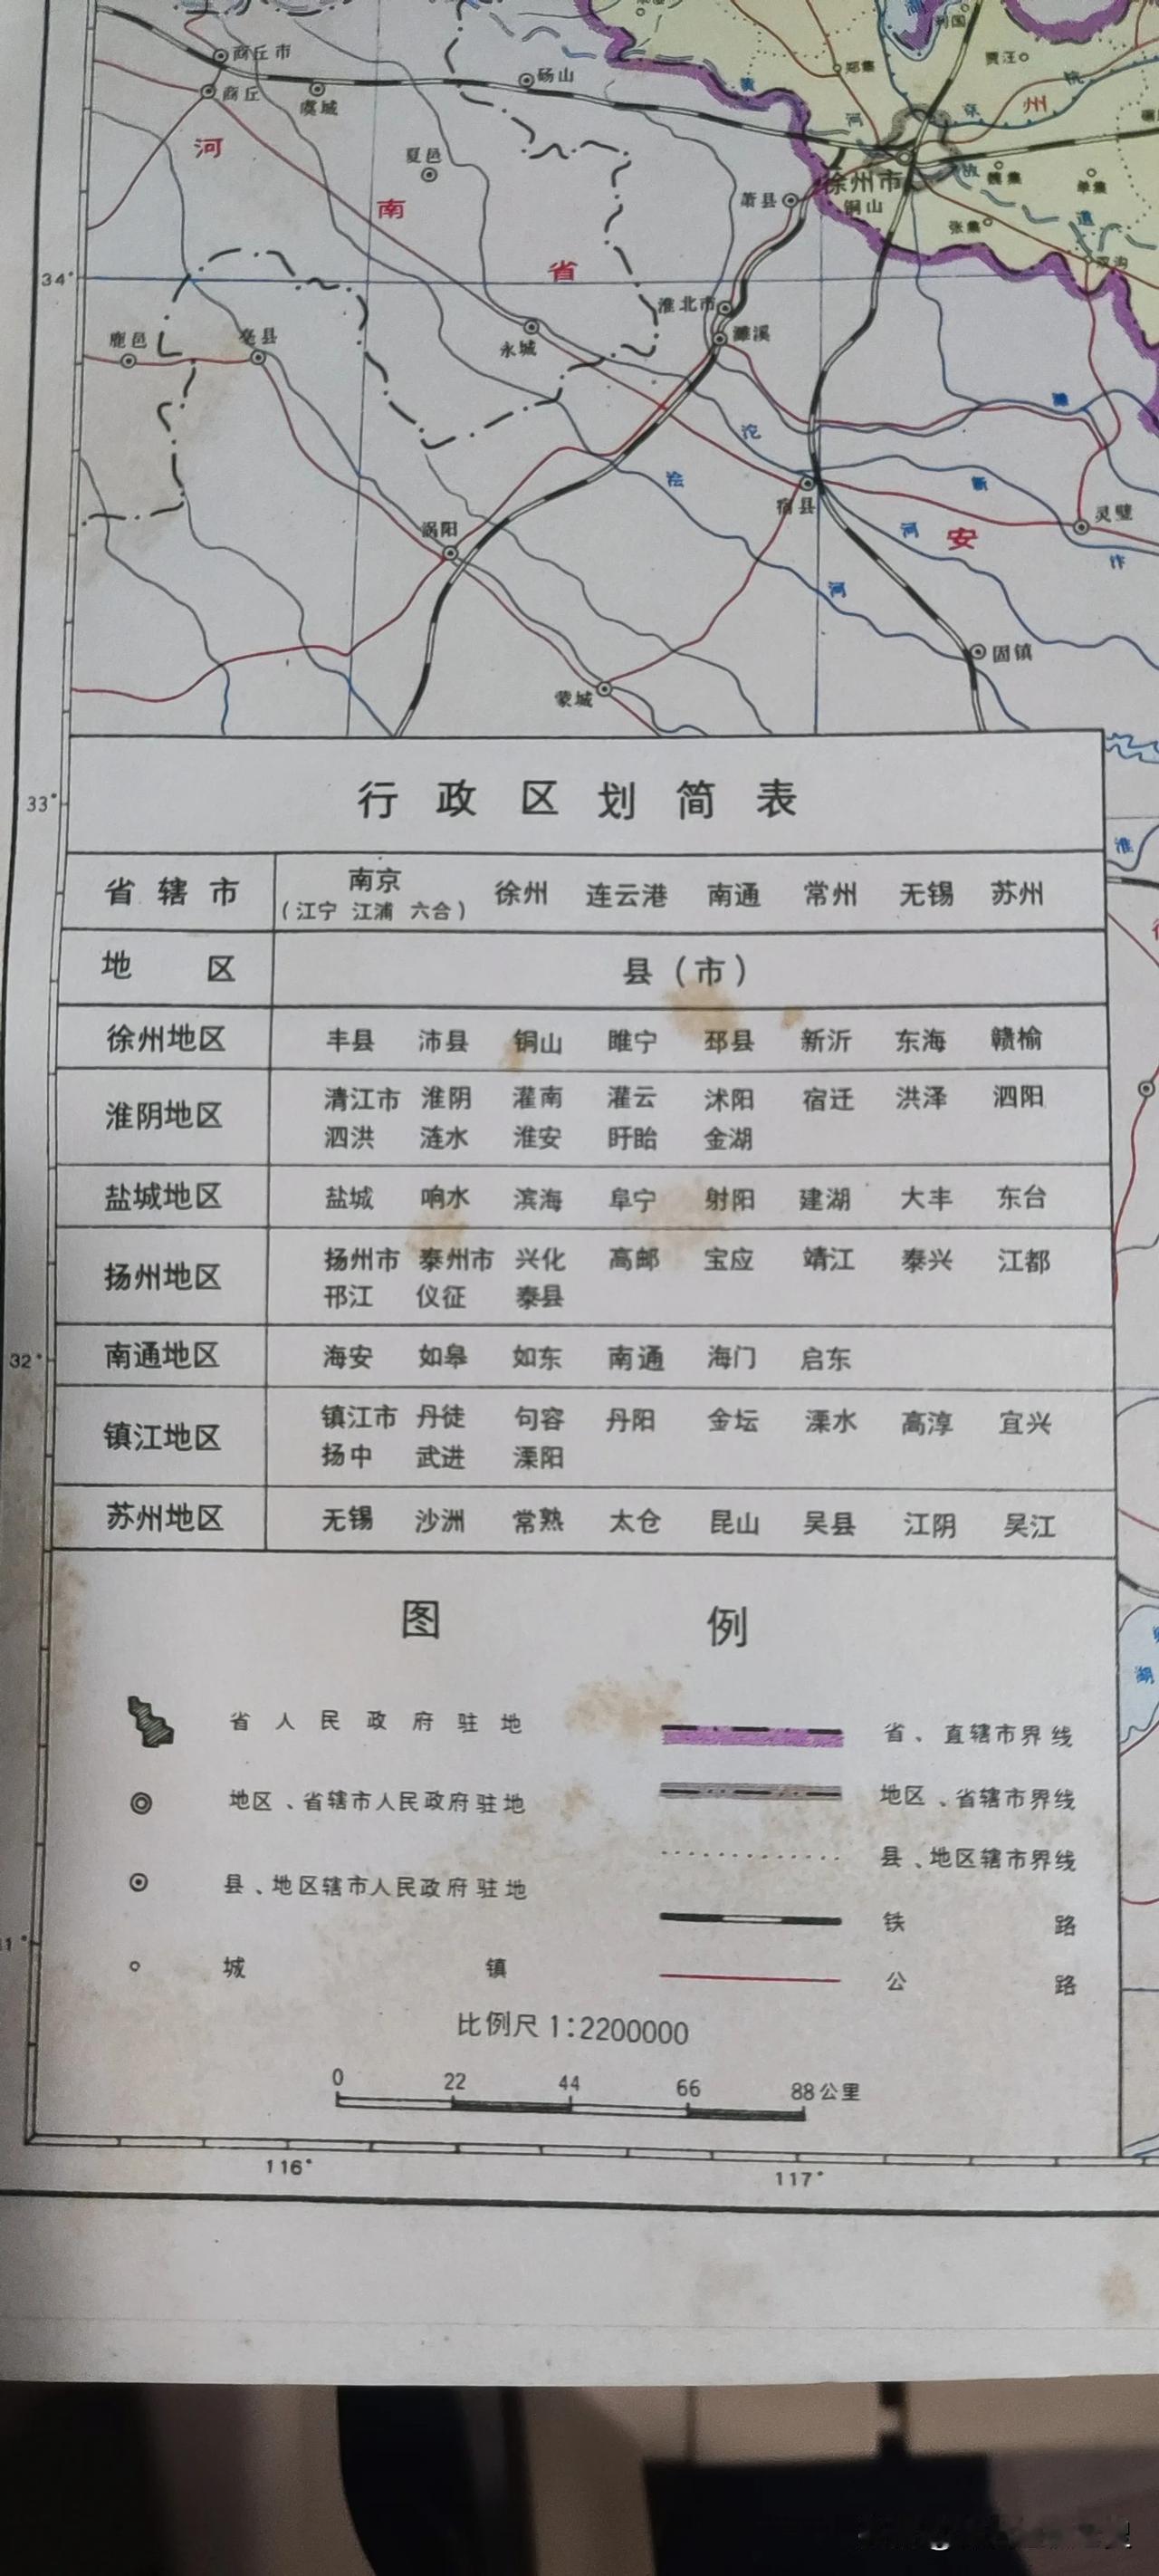 利国
贾汪
郑集
商丘市
砀山
黄
商丘
虞城
河
京
州
杭
河
夏邑
故
单集
徐州市
萧县
铜山
南
道
张集
双沟
34°
省
淮北市
濉溪
鹿邑
亳县
永城
濉
沱
浍
新
宿县
灵璧
涡阳
河
安
汴
河
固镇
蒙城
行政区划简表
33°
淮
省辖市 南京 徐州 连云港 南通 常州 无锡 苏州
(江宁 江浦 六合)
地区 县(市)
徐州地区 丰县 沛县 铜山 睢宁 邳县 新沂 东海 赣榆
淮阴地区 清江市 淮阴 灌南 灌云 沭阳 宿迁 洪泽 泗阳
泗洪 涟水 淮安 盱眙 金湖
盐城地区 盐城 响水 滨海 阜宁 射阳 建湖 大丰 东台
扬州地区 扬州市 泰州市 兴化 高邮 宝应 靖江 泰兴 江都
邗江 仪征 泰县
32°
南通地区 海安 如皋 如东 南通 海门 启东
镇江地区 镇江市 丹徒 句容 丹阳 金坛 溧水 高淳 宜兴
扬中 武进 溧阳
苏州地区 无锡 沙洲 常熟 太仓 昆山 吴县 江阴 吴江
图例
湖
省人民政府驻地 省、直辖市界线
地区、省辖市人民政府驻地 地区、省辖市界线
县、地区辖市人民政府驻地 县、地区辖市界线
铁路
城镇 公路
比例尺 1:2200000
0 22 44 66 88公里
116° 117°